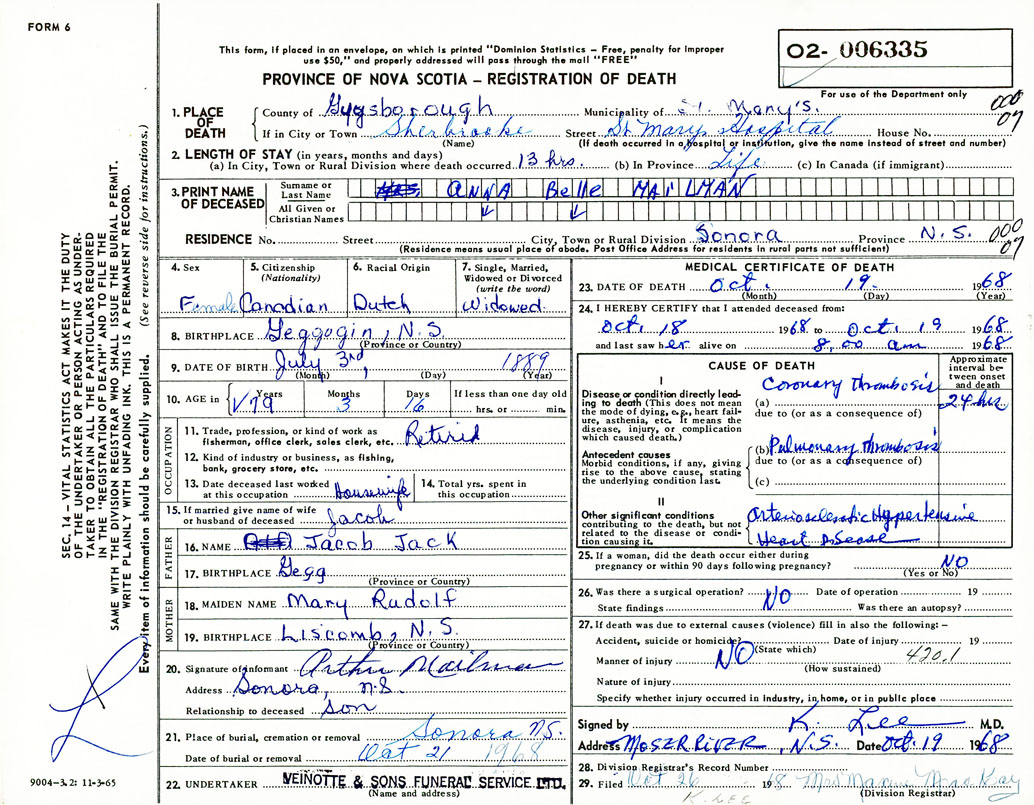 FORM 6
This form, if placed in an envelope, on which is printed "Dominion Statistics – Free, penalty for improper
use $50," and properly addressed will pass through the mail "FREE"
02- 006335
PROVINCE OF NOVA SCOTIA – REGISTRATION OF DEATH
For use of the Department only
1. PLACE OF DEATH County of Gysborough Municipality of St. Mary's. 000 07
If in City or Town Sherbrooke Street St Marys Hospital House No.
(Name) (If death occurred in a hospital or institution, give the name instead of street and number)
2. LENGTH OF STAY (in years, months and days)
(a) In City, Town or Rural Division where death occurred 13 hrs. (b) In Province Life (c) In Canada (if immigrant)
3. PRINT NAME OF DECEASED Surname or Last Name ANNA Belle MAILMAN
All Given or Christian Names
RESIDENCE No. Street City, Town or Rural Division Sonora Province N.S. 000 07
(Residence means usual place of abode. Post Office Address for residents in rural parts not sufficient)
4. Sex Female
5. Citizenship (Nationality) Canadian
6. Racial Origin Dutch
7. Single, Married, Widowed or Divorced (write the word) Widowed
8. BIRTHPLACE Geggogin, N.S.
(Province or Country)
9. DATE OF BIRTH July 3rd, 1889
(Month) (Day) (Year)
10. AGE in Years 79 Months 3 Days 16 If less than one day old
hrs. or min.
OCCUPATION
11. Trade, profession, or kind of work as
fisherman, office clerk, sales clerk, etc. Retired
12. Kind of industry or business, as fishing,
bank, grocery store, etc.
13. Date deceased last worked
at this occupation Housewife
14. Total yrs. spent in
this occupation
15. If married give name of wife
or husband of deceased Jacob
FATHER
16. NAME Jacob Jack
17. BIRTHPLACE Gegg
(Province or Country)
MOTHER
18. MAIDEN NAME Mary Rudolf
19. BIRTHPLACE Liscomb, N.S.
(Province or Country)
20. Signature of informant Arthur Mailman
Address Sonora, N.S.
Relationship to deceased son
21. Place of burial, cremation or removal Sonora N.S.
Date of burial or removal Oct 21 1968
22. UNDERTAKER VEINOTTE & SONS FUNERAL SERVICE LTD.
(Name and address)
MEDICAL CERTIFICATE OF DEATH
23. DATE OF DEATH Oct. 19. 1968
(Month) (Day) (Year)
24. I HEREBY CERTIFY that I attended deceased from:
Oct. 18 1968 to Oct. 19 1968
and last saw her alive on 8.00 am 1968
CAUSE OF DEATH
Approximate interval between onset and death
I
Disease or condition directly leading to death (This does not mean the mode of dying, e.g., heart failure, asthenia, etc. It means the disease, injury, or complication which caused death.)
(a) Coronary thrombosis 24 hrs
due to (or as a consequence of)
Antecedent causes
Morbid conditions, if any, giving rise to the above cause, stating the underlying condition last.
(b) Pulmonary thrombosis
due to (or as a consequence of)
(c)
II
Other significant conditions
contributing to the death, but not related to the disease or condition causing it.
Arteriosclerotic Hypertensive
Heart Disease
25. If a woman, did the death occur either during
pregnancy or within 90 days following pregnancy? NO
(Yes or No)
26. Was there a surgical operation? NO Date of operation 19
State findings Was there an autopsy?
27. If death was due to external causes (violence) fill in also the following: –
Accident, suicide or homicide? NO (State which) Date of injury 19
Manner of injury 420.1
(How sustained)
Nature of injury
Specify whether injury occurred in industry, in home, or in public place
Signed by K. Lee M.D.
Address MOSER RIVER, N.S. Date Oct. 19 1968
28. Division Registrar's Record Number
29. Filed Oct 26 1968 Mrs Maxine MacKay
(Division Registrar)
K. LEE
9004–3.2: 11-3-65
SEC. 14 – VITAL STATISTICS ACT MAKES IT THE DUTY
OF THE UNDERTAKER OR PERSON ACTING AS UNDER-
TAKER TO OBTAIN ALL THE PARTICULARS REQUIRED
IN THE "REGISTRATION OF DEATH" AND TO FILE THE
SAME WITH THE DIVISION REGISTRAR WHO SHALL ISSUE THE BURIAL PERMIT.
WRITE PLAINLY WITH UNFADING INK. THIS IS A PERMANENT RECORD.
Every item of information should be carefully supplied. (See reverse side for instructions.)